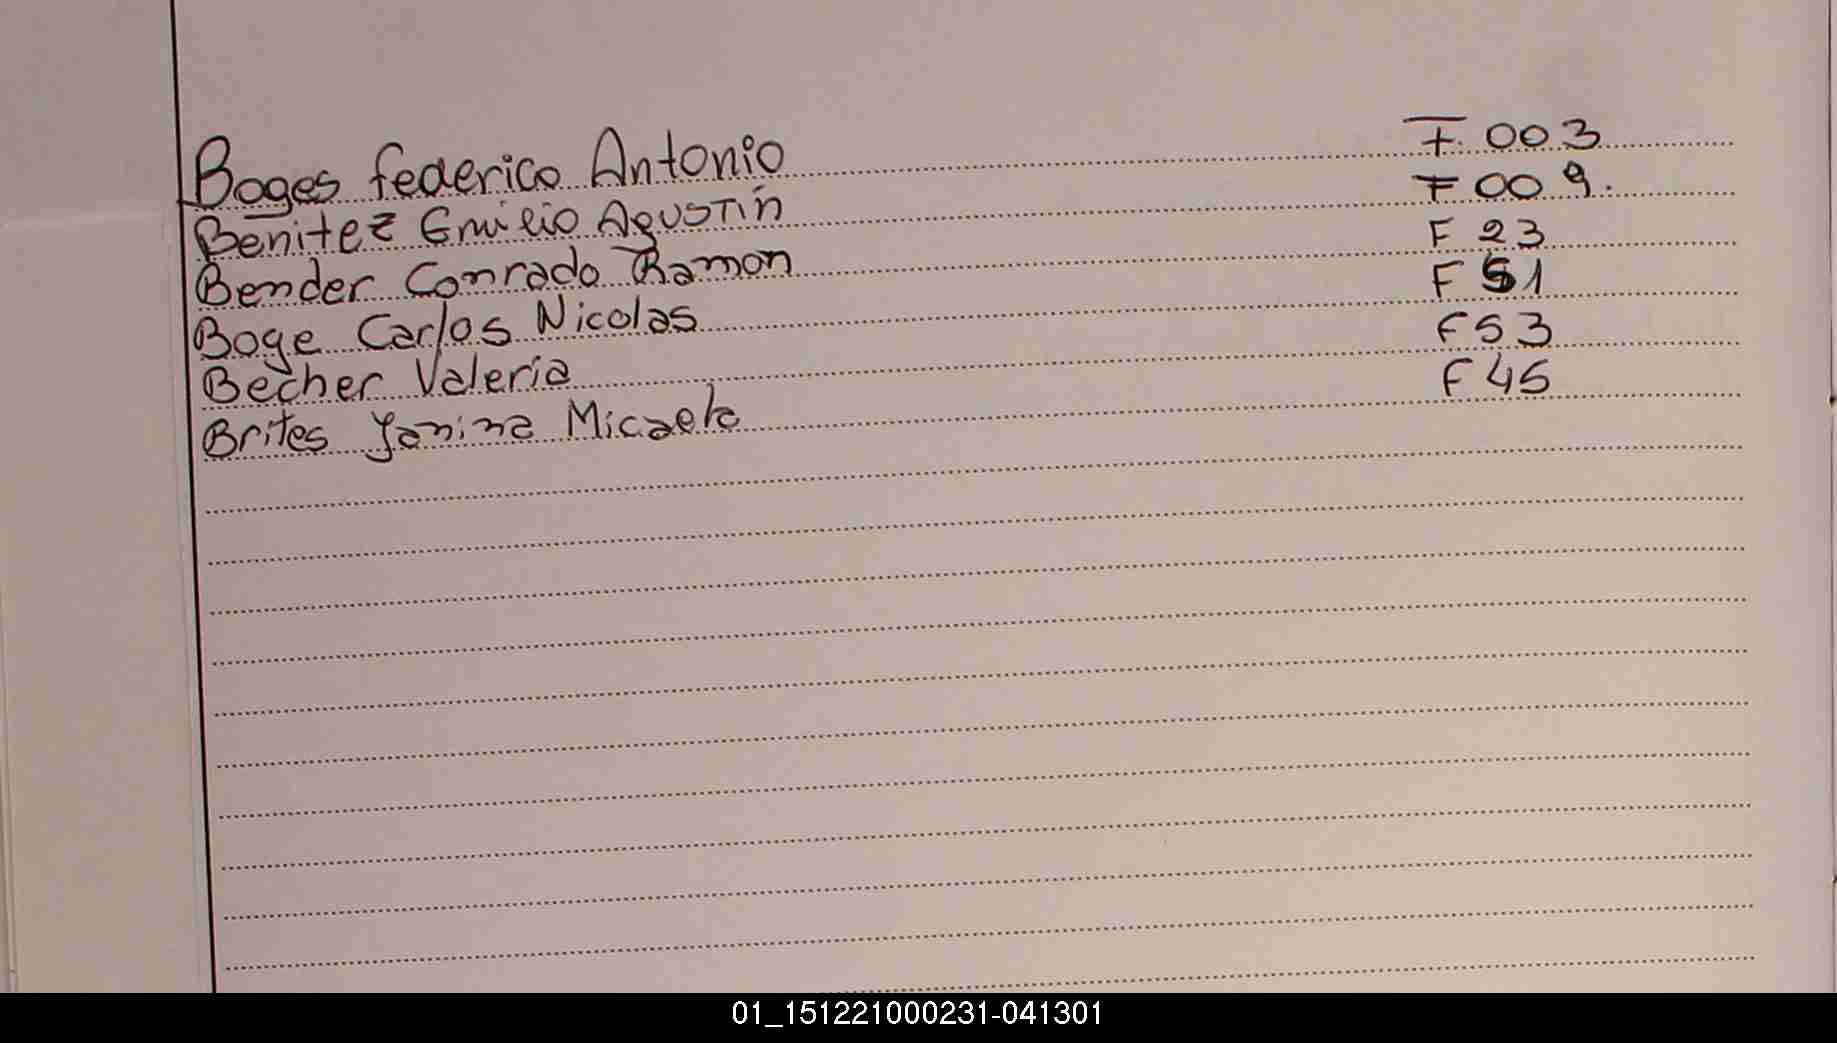 Boges federico Antonio F. 003
Benitez Emilio Agustín F 009.
Bender Conrado Ramon F 23
Boge Carlos Nicolas F 51
Becher Valeria F 53
Brites Janina Micaela F 45
01_151221000231-041301